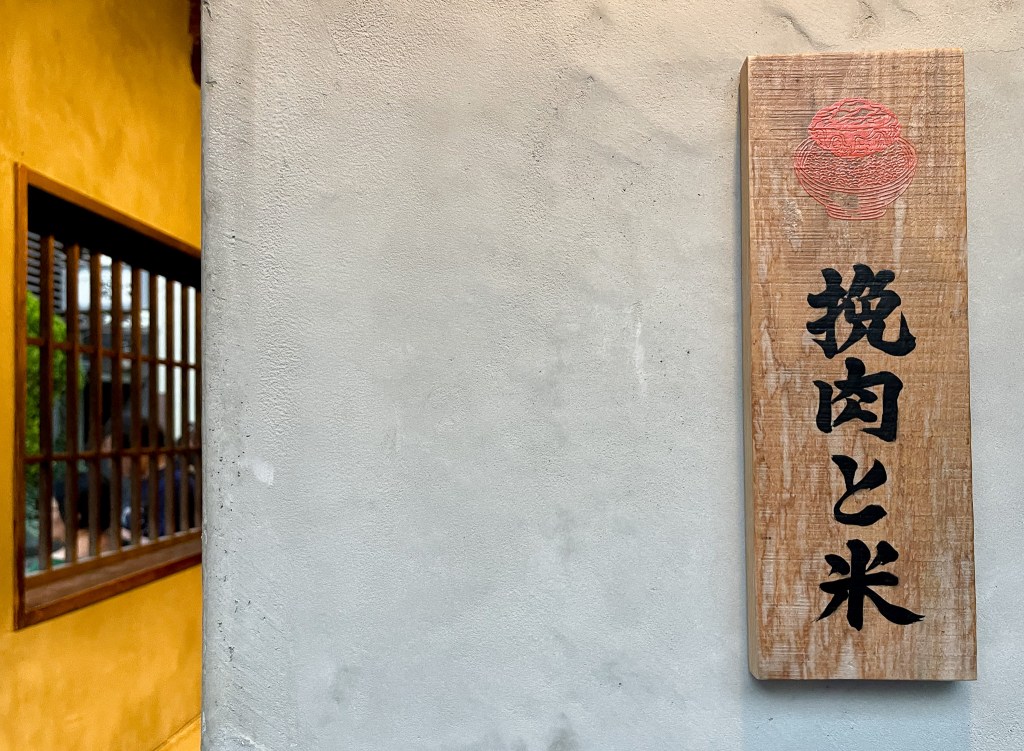 挽肉と米